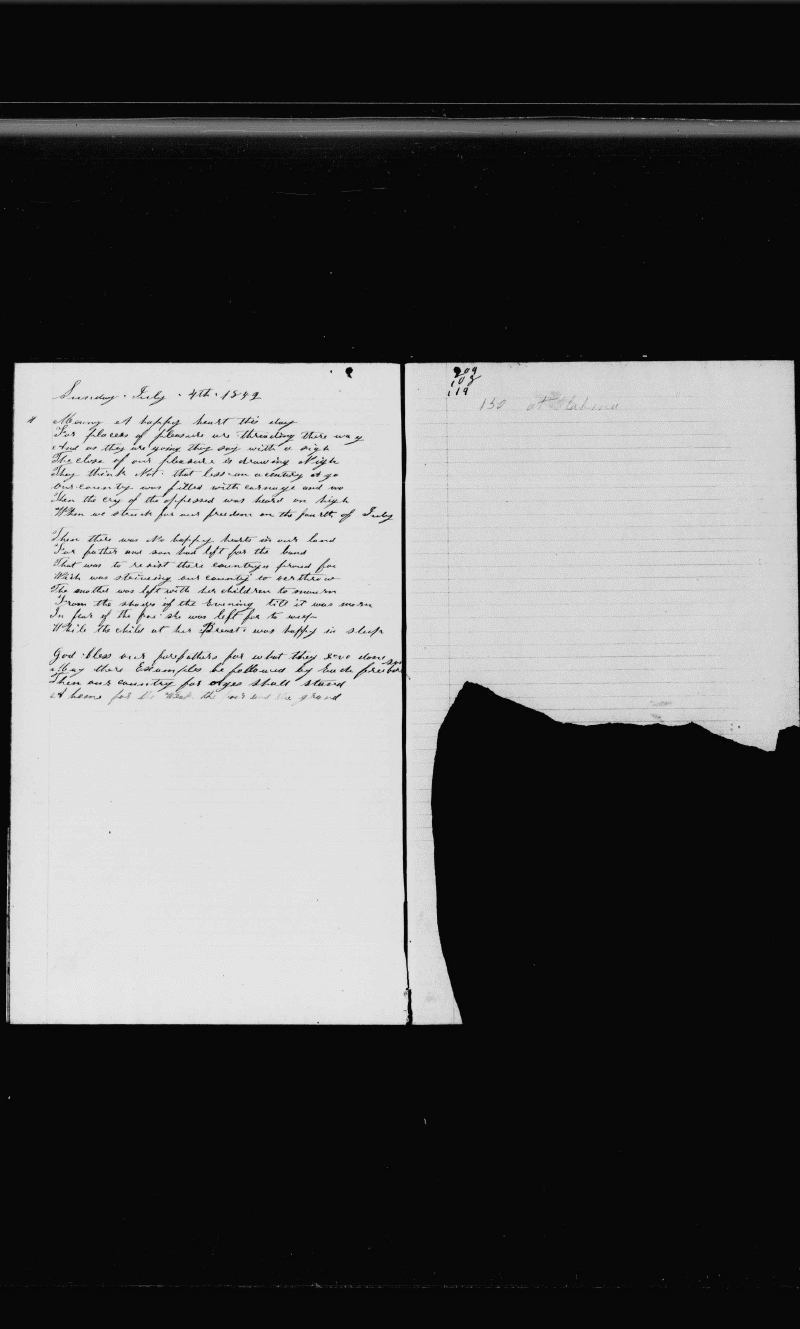 Sunday July 4th 1842
" Meany A happy heart this day
For places of pleasure are threading there way
And as they are going they say with a sigh
The close of our pleasure is drawing Nigh
They think Not that less an a century ago
Our country was filled with carnage and wo
Then the cry of the oppressed was heard on high
When we struck for our freedom on the fourth of July
Then there was No happy hearts in our land
For father and son had left for the band
That was to resist there countrys proud foe
Wich was striveing our country to overthrow
The mother was left with her children to mourn
From the shades of the Evening till it was morn
In fear of the foe she was left for to weep
While the child at her Breast was happy in sleep
God bless our forefathers for what they done
May there Examples be followed by Each freeborn son
Then our country for Ages shall stand
A home for the weak the and the grand
209
108
119
150 at